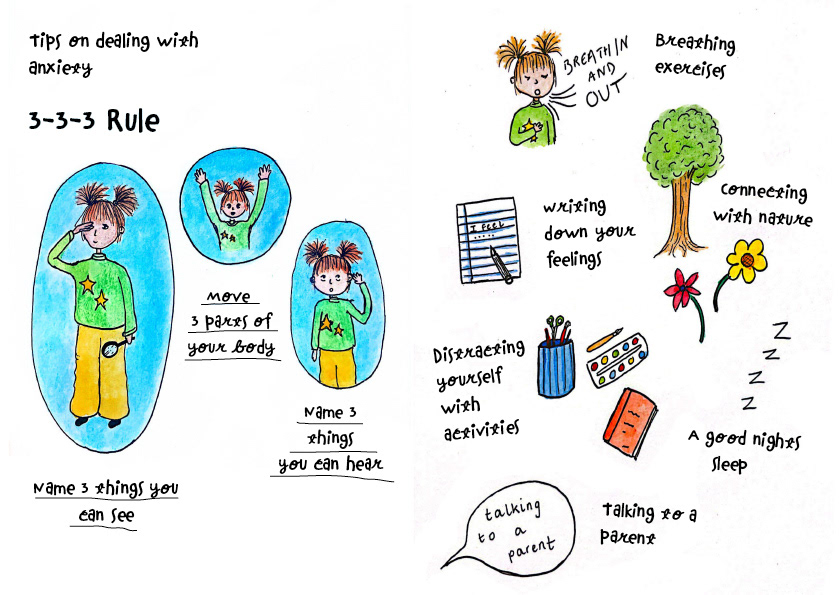 Tips on dealing with
anxiety
3-3-3 Rule
Name 3 things you
can see
Move
3 parts of
your body
Name 3
things
you can hear
BREATH IN
AND
OUT
Breathing
exercises
Connecting
with nature
I feel
writing
down your
feelings
Distracting
yourself
with
activities
Z
Z
Z
Z
A good nights
sleep
talking
to a
parent
Talking to a
parent